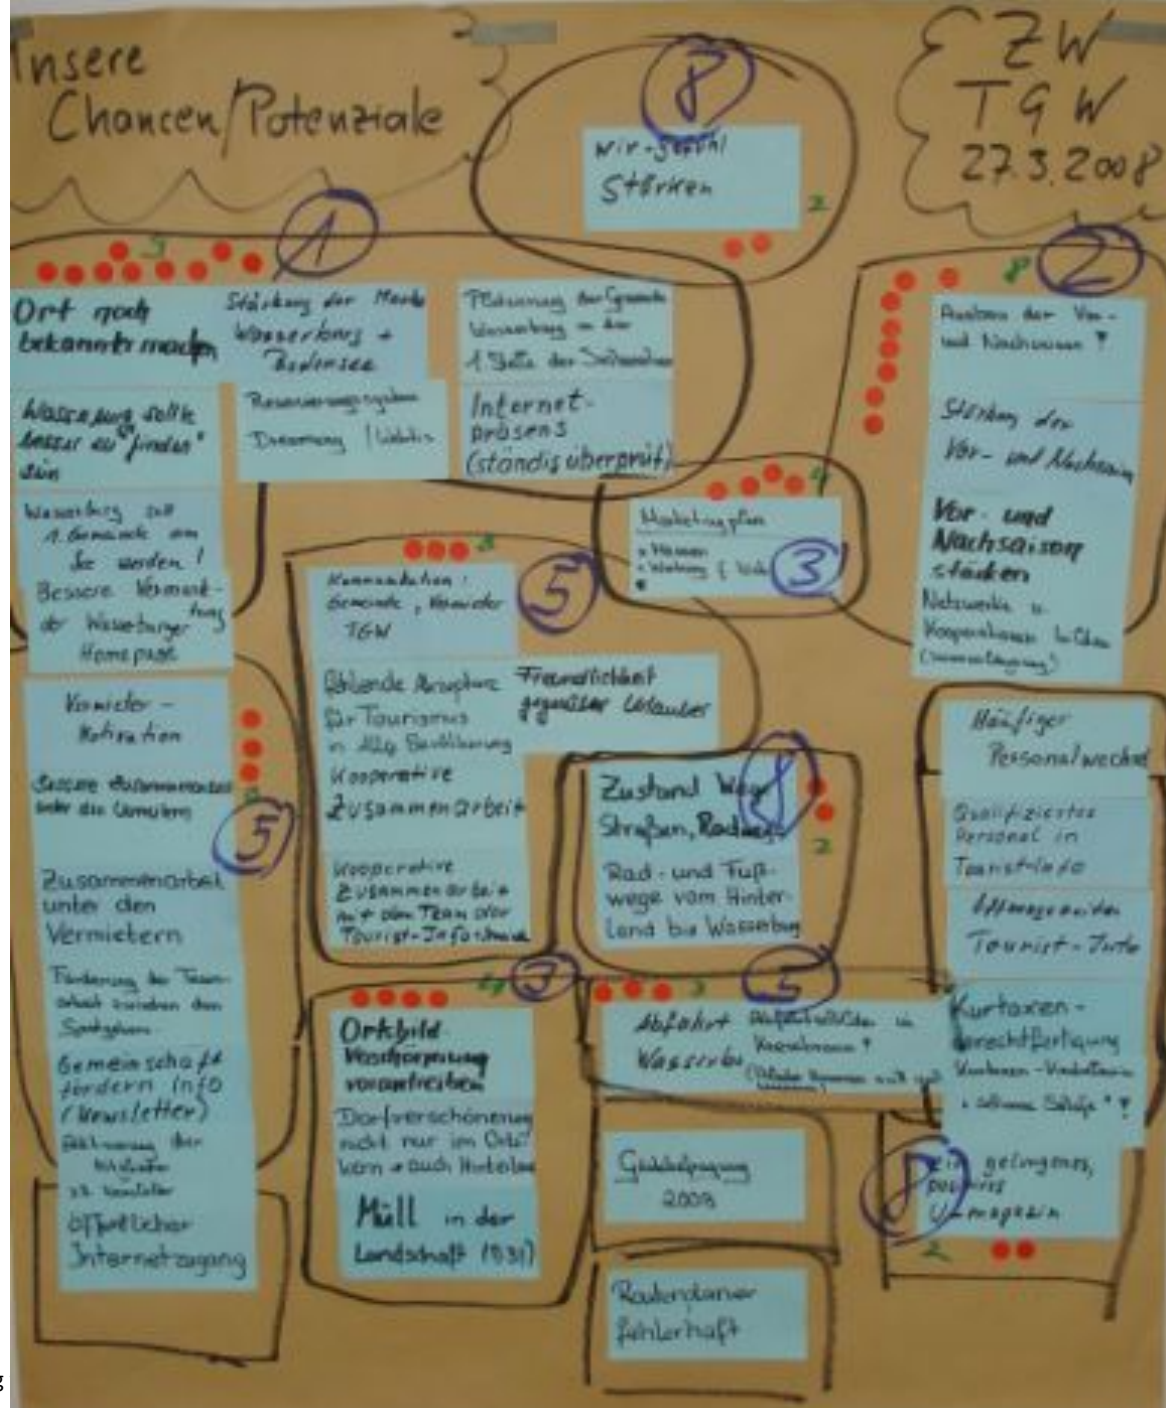 Unsere
Chancen/Potenziale
ZW
TGW
27.3.2008
8
Wir-gefühl
Stärken
2
1
9
Ort noch
bekannter machen
Stärkung der Marke
Wasserburg +
Bodensee
Platzierung der Gemeinde
Wasserburg an der
1. Stelle der
Wasserburg sollte
besser zu "finden"
sein
Reservierungssystem
Internet-
präsens
(ständig überprüft)
Wasserburg soll
1. Gemeinde am
See werden!
Bessere Vermark-
tung
der Wasserburger
Homepage
2
8
Ausbau der Vor-
und Nachsaison
Stärkung der
Vor- und Nachsaison
Vor- und
Nachsaison
stärken
Netzwerke u.
Kooperationen
4
Marketingplan
3
3
5
Kommunikation:
Gemeinde, Vermieter
TGW
fehlende Akzeptanz
für Tourismus
in Bevölkerung
Freundlichkeit
gegenüber Urlauber
Kooperative
Zusammenarbeit
Kooperative
Zusammenarbeit
mit dem Team der
Tourist-Information
Vermieter-
Motivation
Bessere Zusammenarbeit
unter den Vermietern
5
Zusammenarbeit
unter den
Vermietern
Förderung der Team-
arbeit zwischen den
Gemeinschaft
fördern Info
(Newsletter)
öffentlicher
Internetzugang
8
Zustand Wege
Straßen, Radwege
2
Rad- und Fuß-
wege vom Hinter-
land bis Wasserburg
Häufiger
Personalwechsel
Qualifiziertes
Personal in
Tourist-Info
Öffnungszeiten
Tourist-Info
Kurtaxen-
gerechtfertigung
4
3
Ortsbild
Verschönerung
vorantreiben
Dorfverschönerung
nicht nur im Orts-
kern auch Hinterland
Müll in der
Landschaft (B31)
3
5
Abfahrt
Gästebefragung
2008
Routenplaner
fehlerhaft
8
Ein gelungenes,
positives
U-magazin
2
g